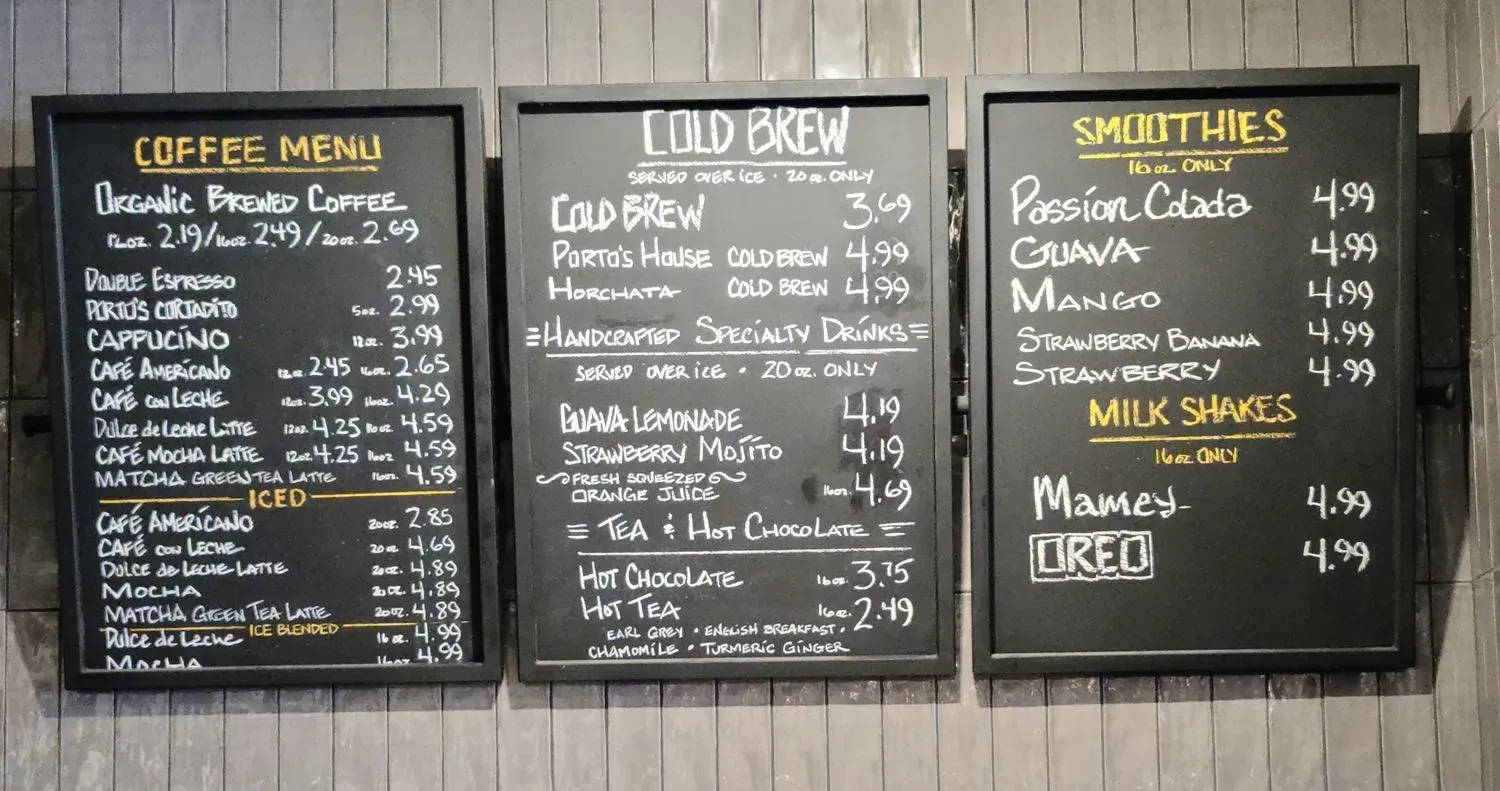 COFFEE MENU
ORGANIC BREWED COFFEE
12oz. 2.19/16oz. 2.49/20oz. 2.69
DOUBLE ESPRESSO 2.45
PORTO'S CORTADITO 5oz. 2.99
CAPPUCINO 12oz. 3.99
CAFÉ AMERICANO 12oz 2.45 16oz. 2.65
CAFÉ CON LECHE 12oz. 3.99 16oz. 4.29
DULCE de LECHE LATTE 12oz. 4.25 16oz 4.59
CAFÉ MOCHA LATTE 12oz 4.25 16oz 4.59
MATCHA GREEN TEA LATTE 16oz. 4.59
ICED
CAFÉ AMERICANO 20oz. 2.85
CAFÉ CON LECHE 20oz 4.69
DOLCE de LECHE LATTE 20oz. 4.89
MOCHA 20oz. 4.89
MATCHA GREEN TEA LATTE 20oz. 4.89
ICE BLENDED
Dulce de Leche 16oz. 4.99
MOCHA 16oz 4.99
COLD BREW
SERVED OVER ICE • 20oz. ONLY
COLD BREW 3.69
PORTO'S HOUSE COLD BREW 4.99
HORCHATA COLD BREW 4.99
HANDCRAFTED SPECIALTY DRINKS
SERVED OVER ICE • 20oz. ONLY
GUAVA LEMONADE 4.19
STRAWBERRY MOJITO 4.19
FRESH SQUEEZED
ORANGE JUICE 16oz. 4.69
TEA & HOT CHOCOLATE
HOT CHOCOLATE 16oz. 3.75
HOT TEA 16oz. 2.49
EARL GREY • ENGLISH BREAKFAST •
CHAMOMILE • TURMERIC GINGER
SMOOTHIES
16oz. ONLY
Passion Colada 4.99
GUAVA 4.99
MANGO 4.99
STRAWBERRY BANANA 4.99
STRAWBERRY 4.99
MILK SHAKES
16oz ONLY
Mamey 4.99
OREO 4.99